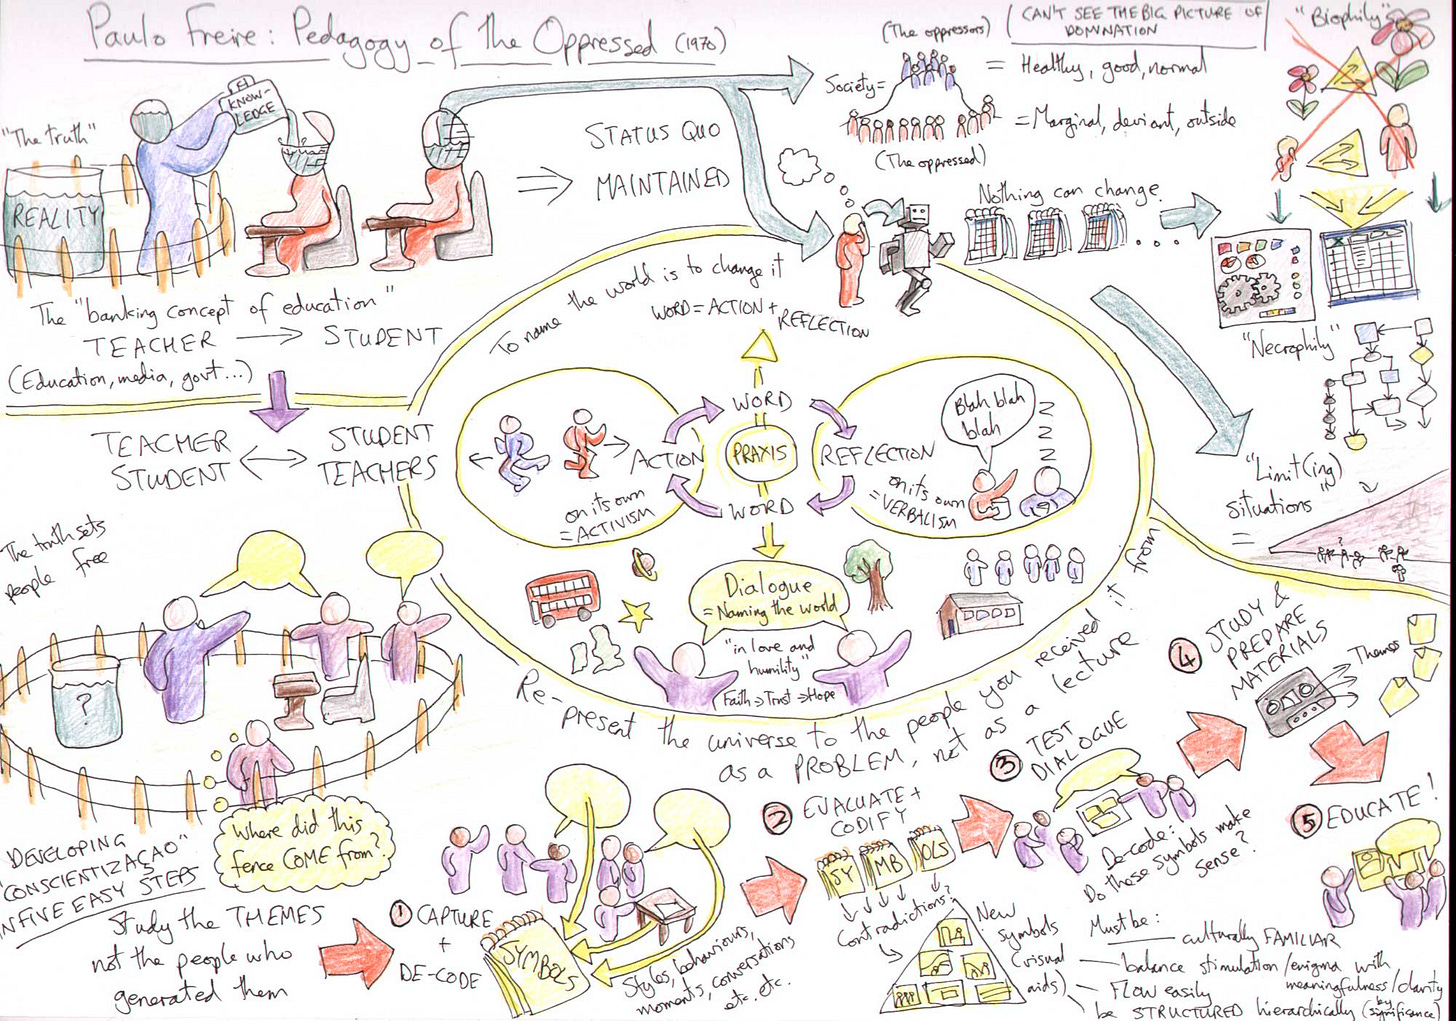 Paulo Freire: Pedagogy of the Oppressed (1970)
"The truth"
REALITY
KNOW-
LEDGE
The "banking concept of education"
TEACHER → STUDENT
(Education, media, govt...)
STATUS QUO
MAINTAINED
(The oppressors)
Society =
= Healthy, good, normal
= Marginal, deviant, outside
(The oppressed)
CAN'T SEE THE BIG PICTURE OF
DOMINATION
"Biophily"
Nothing can change
"Necrophily"
"Limit(ing)
situations"
=
TEACHER
STUDENT
STUDENT
TEACHERS
The truth sets
people free
?
Where did this
fence COME from?
To name the world is to change it
WORD = ACTION +
REFLECTION
WORD
PRAXIS
WORD
ACTION
on its own
= ACTIVISM
REFLECTION
on its own
= VERBALISM
Blah blah
blah
Z
Z
Z
Z
Dialogue
= Naming the world
"in love and
humility"
Faith → Trust → Hope
Re-present the universe to the people you received it from
as a PROBLEM, not as a lecture
"DEVELOPING
"CONSCIENTIZAÇAO"
IN FIVE EASY STEPS
Study the THEMES
not the people who
generated them
1 CAPTURE
+
DE-CODE
SYMBOLS
Styles, behaviours,
moments, conversations
etc. etc.
2 EVALUATE +
CODIFY
SY MB OLS
Contradictions?
New
symbols
(visual
aids)
3 TEST
DIALOGUE
De-code:
Do these symbols make
sense?
4 STUDY &
PREPARE
MATERIALS
Themes
5 EDUCATE!
Must be:
— culturally FAMILIAR
— balance stimulation/enigma with
meaningfulness/clarity
— FLOW easily
— be STRUCTURED hierarchically (by
significance)